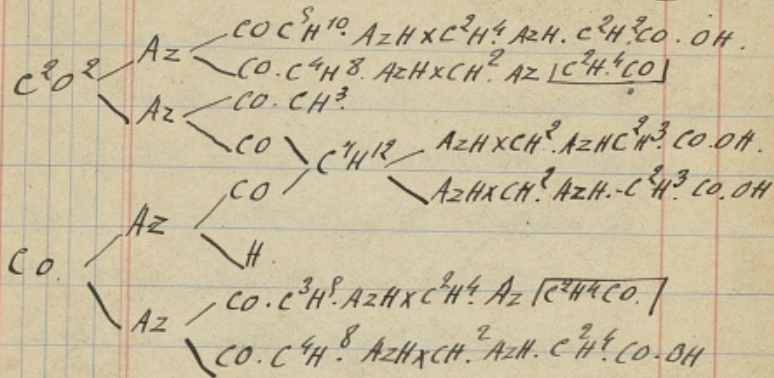 CO C⁵H¹⁰. AzH x C²H⁴. AzH. C²H²CO. OH.
Az
C²O²
CO. C⁴H⁸. AzH x CH². Az C²H⁴CO
Az
CO. CH³.
CO
C⁷H¹² AzH x CH². AzH C²H³. CO. OH.
CO
AzH x CH². AzH. - C²H³. CO. OH
Az
H
CO.
CO. C³H⁸. AzH x C²H⁴. Az C²H⁴CO.
Az
CO. C⁴H⁸. AzH x CH². AzH. C²H⁴. CO. OH